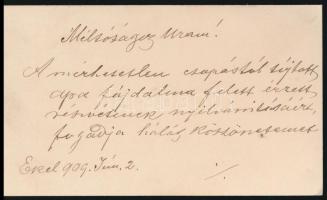 Méltóságos Uram!
A mérhetetlen csapástól sújtott
apa fájdalma felett érzett
részvétének nyilvánításáért,
fogadja hálás köszönetemet
909. Jún. 2.
./.